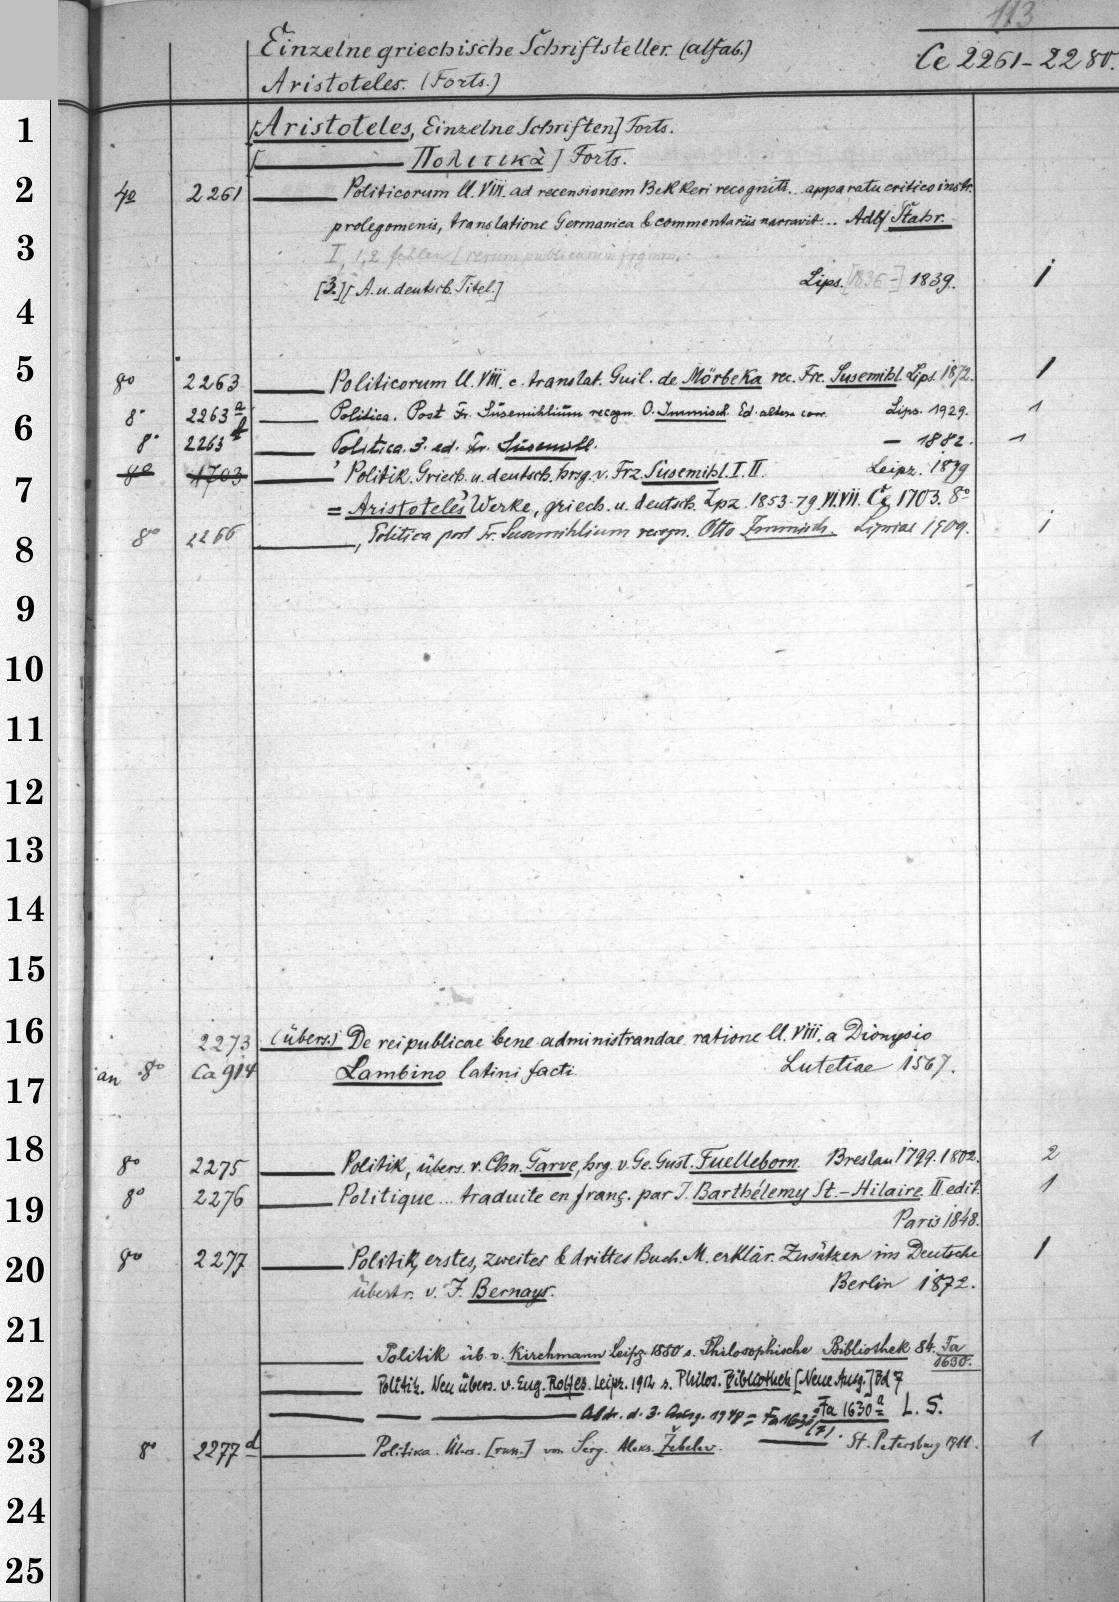 113
Einzelne griechische Schriftsteller. (alfab.)
Ce 2261-2280.
Aristoteles. (Forts.)
1 [Aristoteles, Einzelne Schriften] Forts.
[——— Πολιτικὰ] Forts.
2 4o 2261 ——— Politicorum ll. VIII. ad recensionem Bekkeri recogniti.. apparatu critico instr.
prolegomenis, translatione Germanica & commentariis ... Adlf Stahr.
3 I, 1,2 fehlen [rerum publicarum frgmm.
[3.] [A. u. deutsch. Titel.] Lips. [1836-] 1839. 1
4
5 8o 2263 ——— Politicorum ll. VIII. c. translat. Guil. de Mörbeka rec. Frc. Susemihl. Lips. 1872. 1
8o 2263a ——— Politica. Post Fr. Susemihlium recogn. O. Immisch. Ed. altera corr. Lips. 1929. 1
6 8o 2263b ——— Politica. 3. ed. Fr. Susemihl. — 1882. 1
8o 1703 ——— Politik. Griech. u. deutsch. hrsg. v. Frz Susemihl. I. II. Leipz. 1879
7 = Aristoteles' Werke, griech. u. deutsch. Lpz. 1853-79 VI. VII. Ce 1703. 8o
8 8o 2266 ———, Politica post Fr. Susemihlium recogn. Otto Immisch. Lipsiae 1909. 1
9
10
11
12
13
14
15
16 2273 (übers.) De reipublicae bene administrandae ratione ll. VIII. a Dionysio
17 an 8o Ca 914 Lambino latini facti Lutetiae 1567.
18 8o 2275 ——— Politik, übers. v. Chn. Garve, hrg. v. Ge. Gust. Fuelleborn. Breslau 1799. 1802. 2
8o 2276 ——— Politique ... traduite en franç. par J. Barthélemy St.-Hilaire. II edit. 1
19 Paris 1848.
20 8o 2277 ——— Politik, erstes, zweites & drittes Buch. M. erklär. Zusätzen ins Deutsche 1
übertr. v. J. Bernays. Berlin 1872.
21 ——— Politik üb. v. Kirchmann Leipz 1880 s. Philosophische Bibliothek 84. Fa 1630.
22 ——— Politik. Neu übers. v. Eug. Rolfes. Leipz. 1912 s. Philos. Bibliothek [Neue Ausg.] Bd 7
——— — ——— Abdr. d. 3. Ausg. 1948 = Fa 1630 [7]. Fa 1630a L. S.
23 8o 2277d ——— Politika. Übers. [russ.] von Serg. Aleks. Žebelev. St. Petersburg 1911. 1
24
25